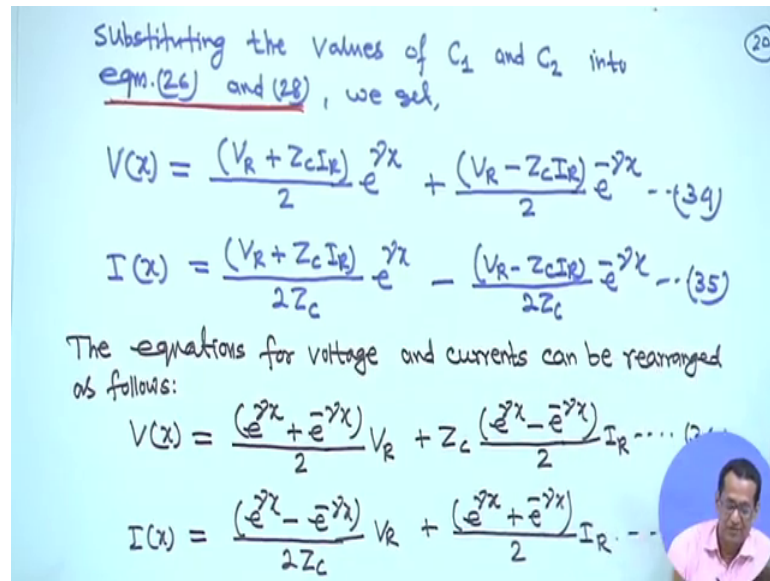 20
Substituting the values of C₁ and C₂ into
eqn.(26) and (28), we get,
V(x) = (V_R + Z_C I_R)/2 e^{γx} + (V_R − Z_C I_R)/2 e^{−γx} --(34)
I(x) = (V_R + Z_C I_R)/2Z_C e^{γx} − (V_R − Z_C I_R)/2Z_C e^{−γx} --(35)
The equations for voltage and currents can be rearranged
as follows:
V(x) = (e^{γx} + e^{−γx})/2 V_R + Z_C (e^{γx} − e^{−γx})/2 I_R ----
I(x) = (e^{γx} − e^{−γx})/2Z_C V_R + (e^{γx} + e^{−γx})/2 I_R --